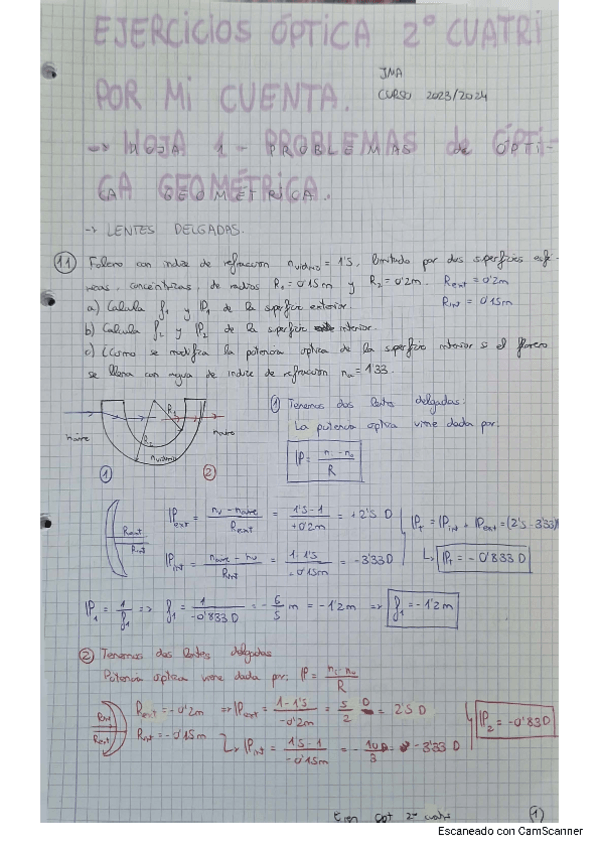 EJERCICIOS ÓPTICA 2º CUATRI
POR MI CUENTA.
JMA
CURSO 2023/2024
→ HOJA 1 - PROBLEMAS de ÓPTI-
CA GEOMÉTRICA.
→ LENTES DELGADAS.
11 Florero con indice de refracción n vidrio = 1'5, limitado por dos superficies esfe-
ricas, concéntricas, de radios R₁ = 0'15m y R₂ = 0'2m. Rext = 0'2m
Rint = 0'15m
a) Calcula f₁ y P₁ de la superficie exterior.
b) Calcula f₂ y P₂ de la superficie interior.
c) ¿Cómo se modifica la potencia óptica de la superficie interior si el florero
se llena con agua de indice de refracción na = 1'33.
naire
R₁
R₂
nvidrio
naire
① ②
① Tenemos dos lentes delgadas:
La potencia óptica viene dada por.
P = (n₁ - n₀)/R
Rext
Rint
Pext = (nv - naire)/Rext = (1'5 - 1)/(+0'2m) = +2'5 D
Pint = (naire - nv)/Rint = (1 - 1'5)/(-0'15m) = -3'33 D
PT = Pint + Pext = (2'5 - 3'33)
↳ PT = -0'833 D
P₁ = 1/f₁ => f₁ = 1/(-0'833 D) = -6/5 m = -1'2m => f₁ = -1'2m
② Tenemos dos lentes delgadas
Potencia óptica viene dada por: P = (n₁ - n₀)/R
Rint
Rext
Rext = -0'2m => Pext = (1 - 1'5)/(-0'2m) = 5/2 D = 2'5 D
Rint = -0'15m ↳ Pint = (1'5 - 1)/(-0'15m) = -10/3 = -3'33 D
P₂ = -0'83D
2º cuatri
(1)
Escaneado con CamScanner